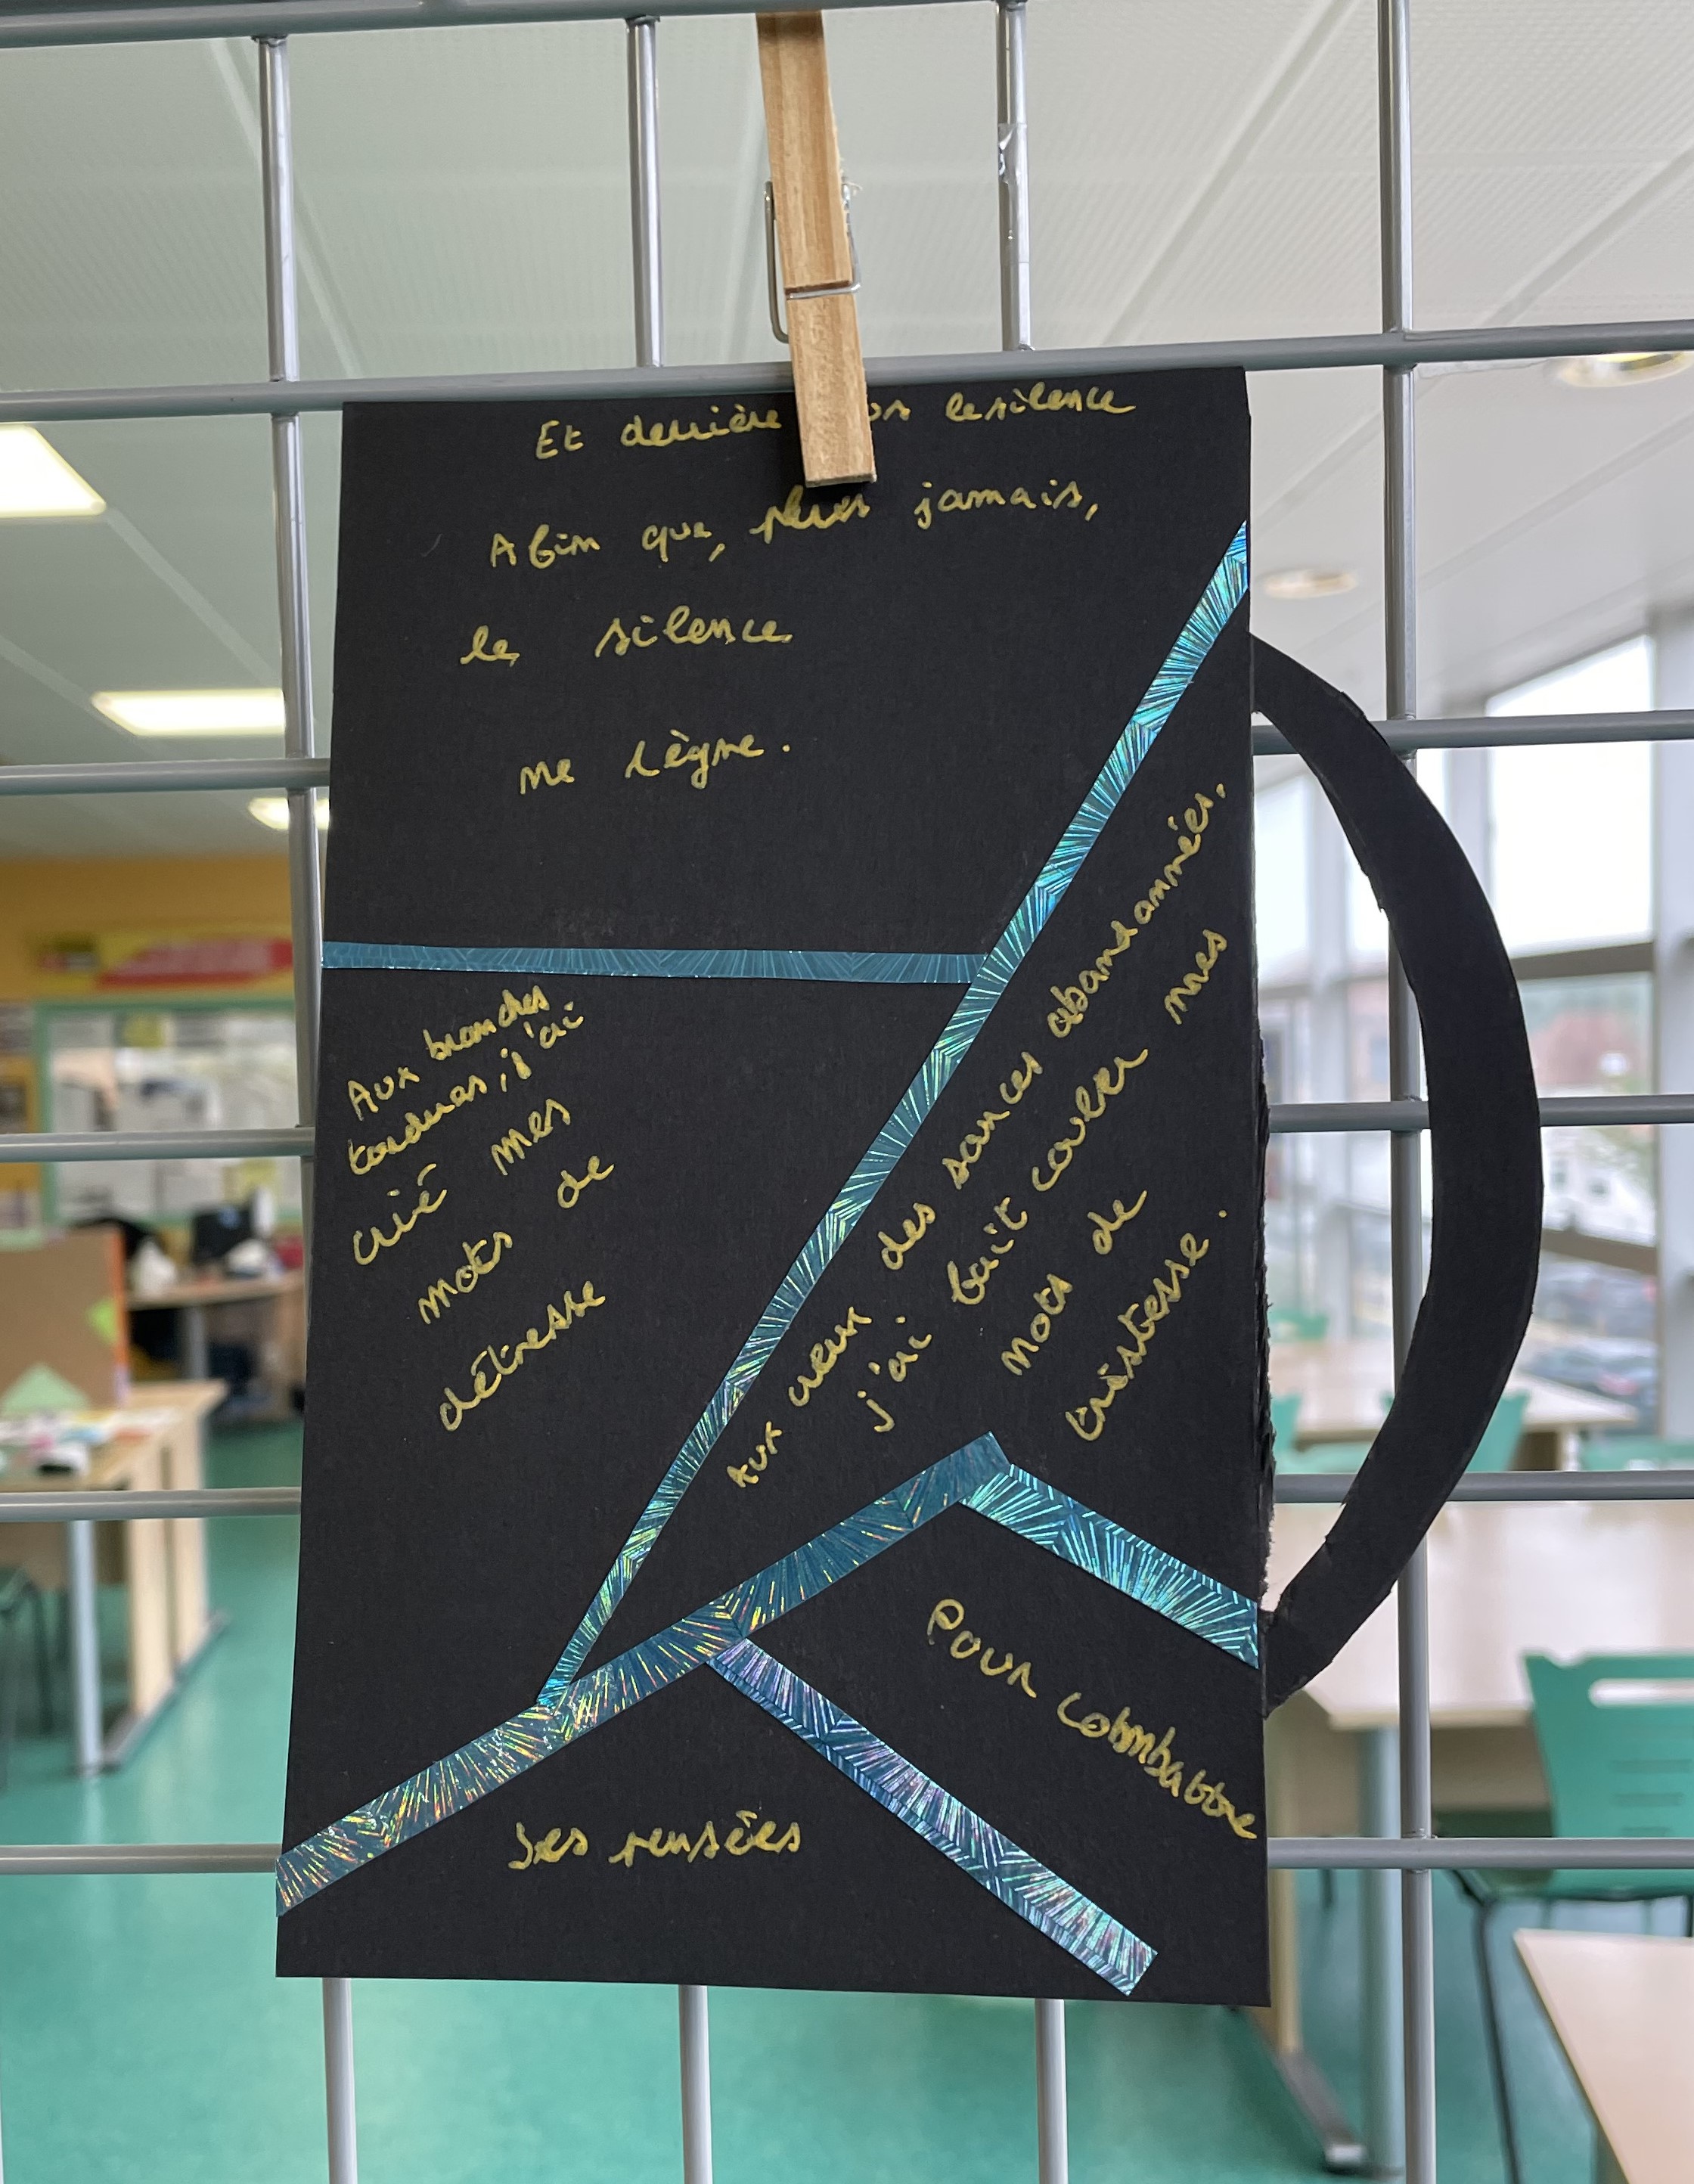 Et derrière le silence
Afin que, plus jamais,
le silence
ne règne.
Aux branches
tordues, j'ai
crié mes
mots de
détresse
Aux creux des sources abandonnées,
j'ai fait couler mes
mots de
tristesse.
Pour combattre
Ses pensées